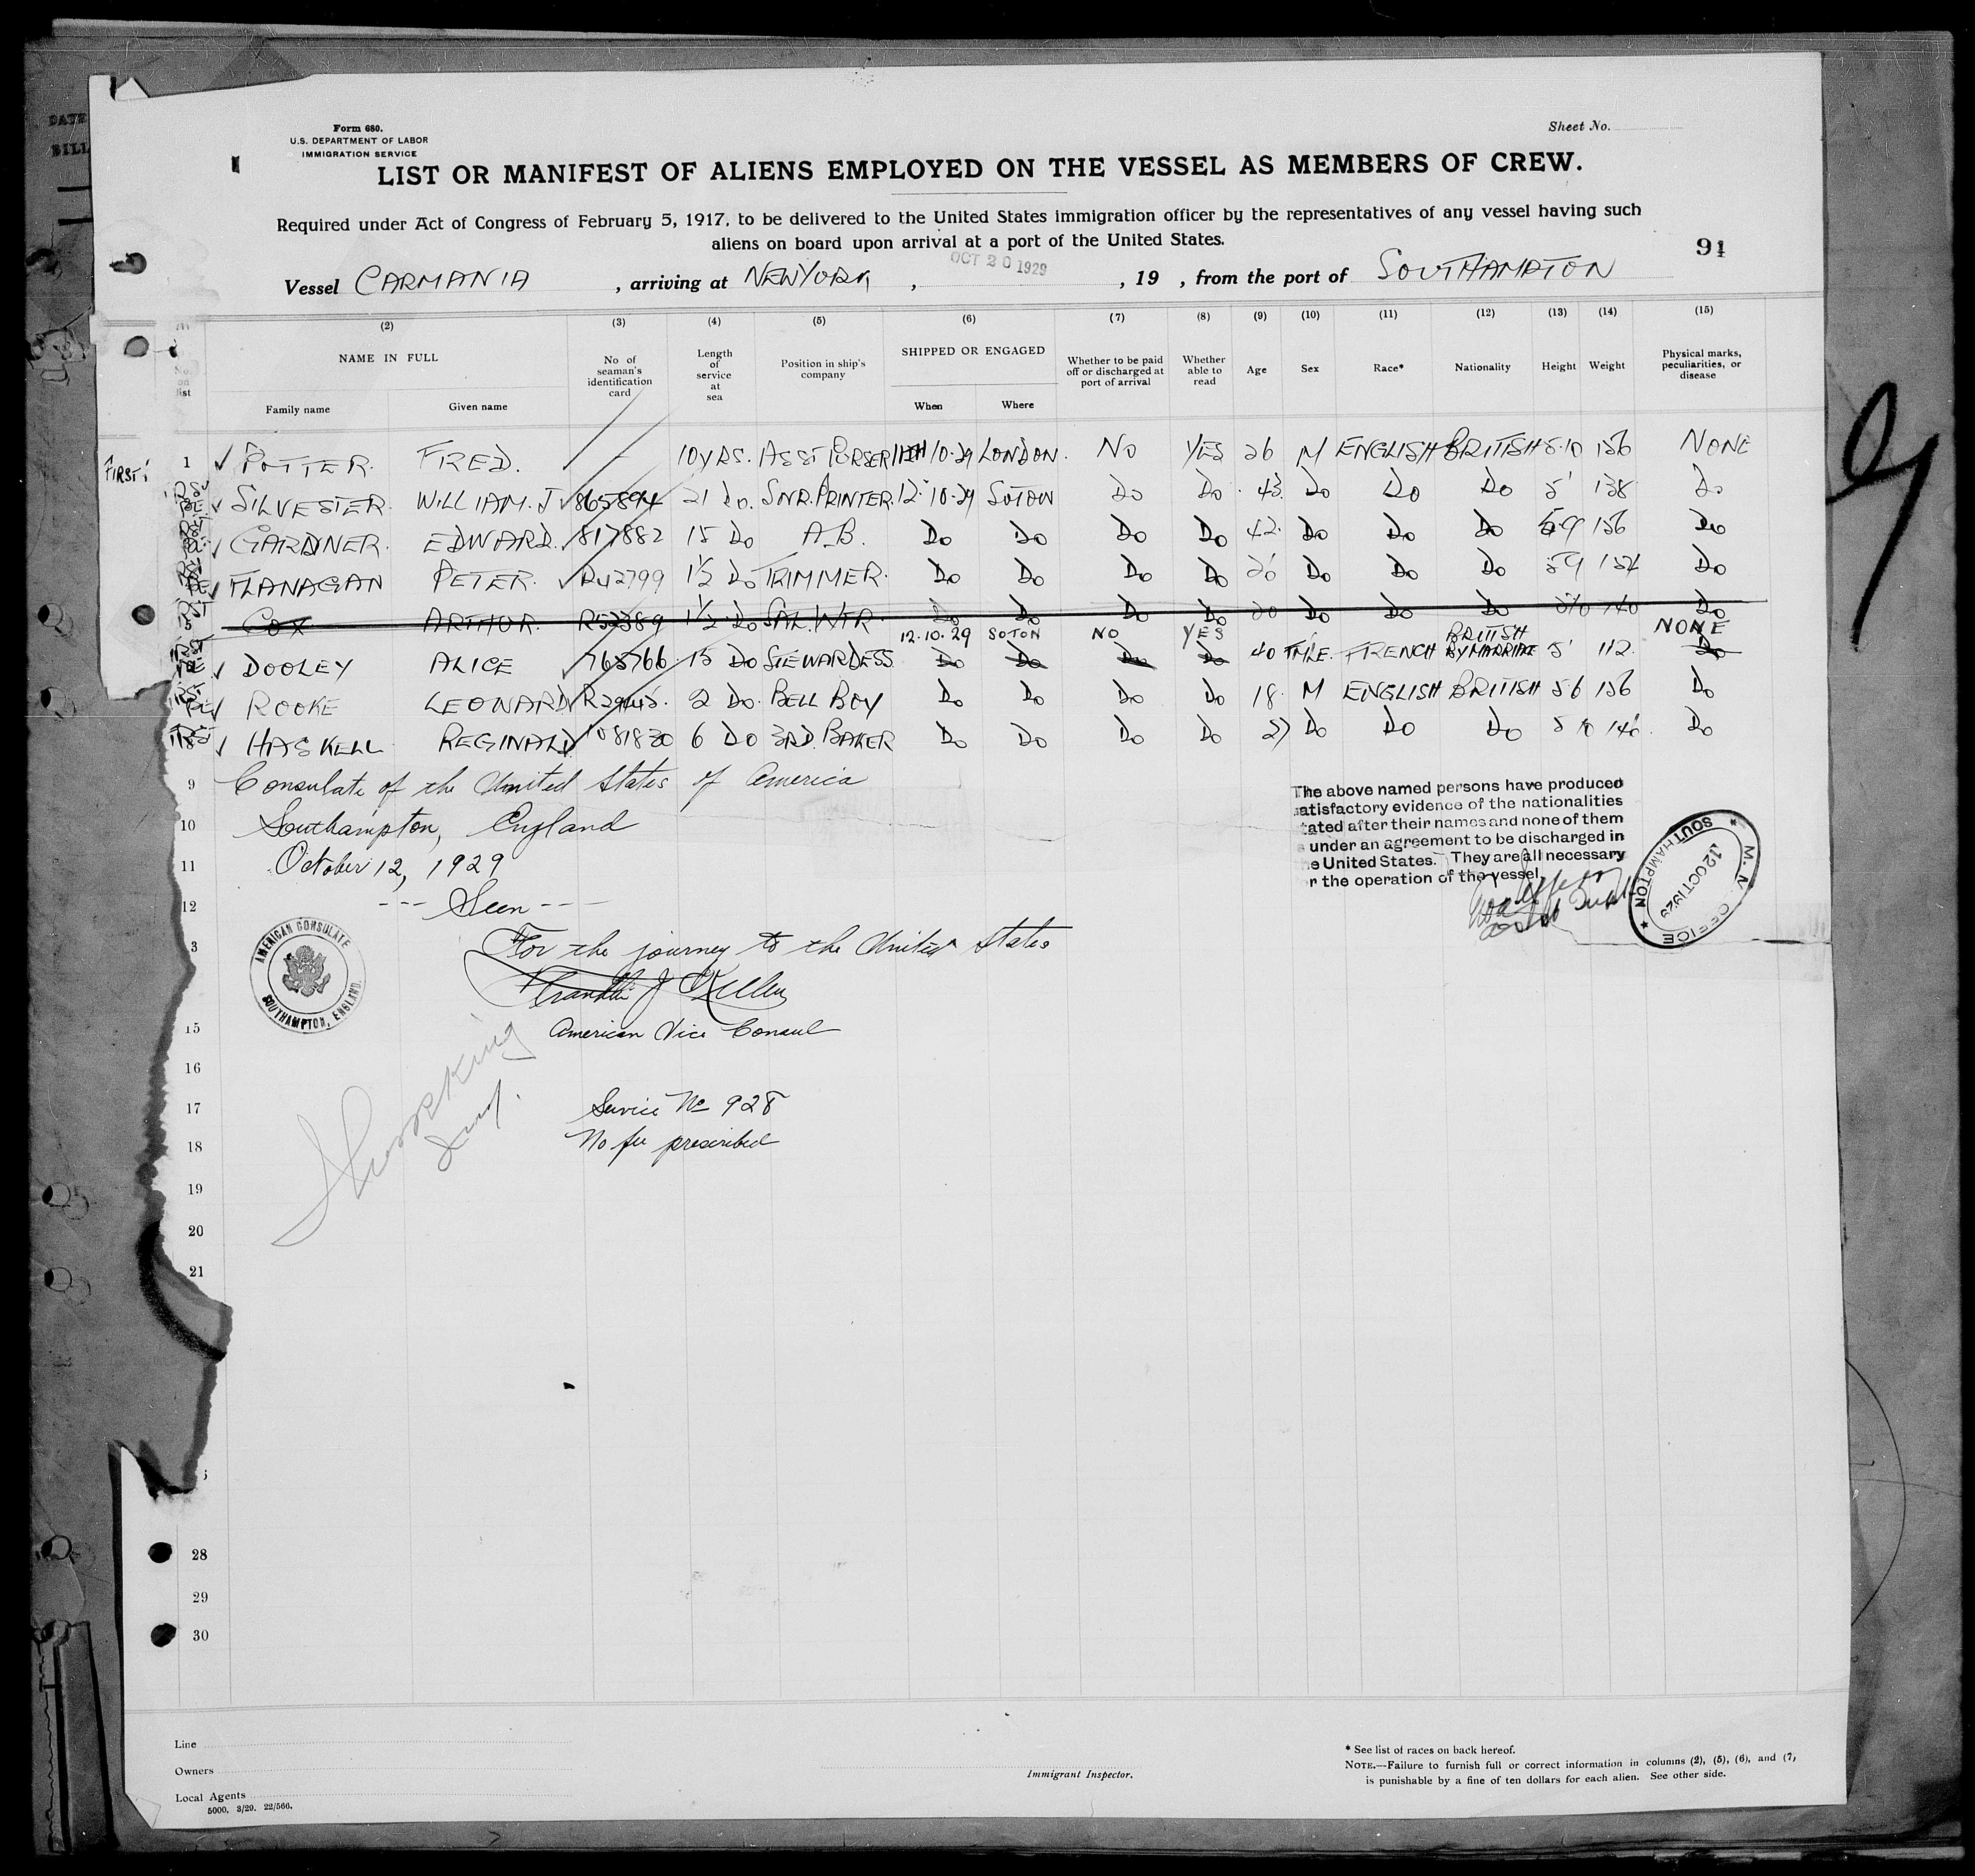 DATE
BILL
Form 680.
U.S. DEPARTMENT OF LABOR
IMMIGRATION SERVICE
Sheet No.
LIST OR MANIFEST OF ALIENS EMPLOYED ON THE VESSEL AS MEMBERS OF CREW.
Required under Act of Congress of February 5, 1917, to be delivered to the United States immigration officer by the representatives of any vessel having such
aliens on board upon arrival at a port of the United States.
91
Vessel CARMANIA, arriving at NEW YORK, OCT 20 1929, 19 , from the port of SOUTHAMPTON
(2) (3) (4) (5) (6) (7) (8) (9) (10) (11) (12) (13) (14) (15)
No. on list
NAME IN FULL
Family name Given name
No of seaman's identification card
Length of service at sea
Position in ship's company
SHIPPED OR ENGAGED
When Where
Whether to be paid off or discharged at port of arrival
Whether able to read
Age Sex Race* Nationality Height Weight
Physical marks, peculiarities, or disease
FIRST
1 ✓ POTTER. FRED. - 10 YRS. ASST PURSER 11TH 10-29 LONDON. NO YES 26 M ENGLISH BRITISH 5.10 156 NONE
✓ SILVESTER. WILLIAM. J ✓ 865894 21 Do. SNR. PRINTER. 12-10-29 SOTON Do Do 43 Do Do Do 5' 138 Do
✓ GARDNER. EDWARD. 817882 15 Do A.B. Do Do Do Do 42 Do Do Do 5.9 156 Do
✓ FLANAGAN PETER. ✓ R42799 1½ Do TRIMMER. Do Do Do Do 26 Do Do Do 5 9 154 Do
5 COX ARTHUR. R52389 1½ Do SAL. WTR. Do Do Do Do 20 Do Do Do 5 10 140 Do
12.10.29 SOTON NO YES BRITISH NONE
✓ DOOLEY ALICE 765766 15 Do STEWARDESS Do Do Do Do 40 FMLE. FRENCH BY MARRIAGE 5' 112. Do
✓ ROOKE LEONARD ✓ R29445. 2 Do. BELL BOY Do Do Do Do 18. M ENGLISH BRITISH 5 6 156 Do
8 ✓ HASKELL REGINALD 1081830 6 Do 3RD. BAKER Do Do Do Do 27 Do Do Do 5 10 146 Do
9 Consulate of the United States of America
10 Southampton, England
11 October 12, 1929
12 --- Seen ---
3 For the journey to the United States
American Vice Consul
15
16
17 Service No 928
18 No fee prescribed
19
20
21
28
29
30
The above named persons have produced
atisfactory evidence of the nationalities
tated after their names and none of them
under an agreement to be discharged in
e United States. They are all necessary
r the operation of the vessel
M. M. OFFICE
12 OCT 1929
SOUTHAMPTON
AMERICAN CONSULATE
SOUTHAMPTON, ENGLAND.
Line
Owners
Local Agents
5000, 3/29. 22/566.
Immigrant Inspector.
* See list of races on back hereof.
NOTE.—Failure to furnish full or correct information in columns (2), (5), (6), and (7,
is punishable by a fine of ten dollars for each alien. See other side.